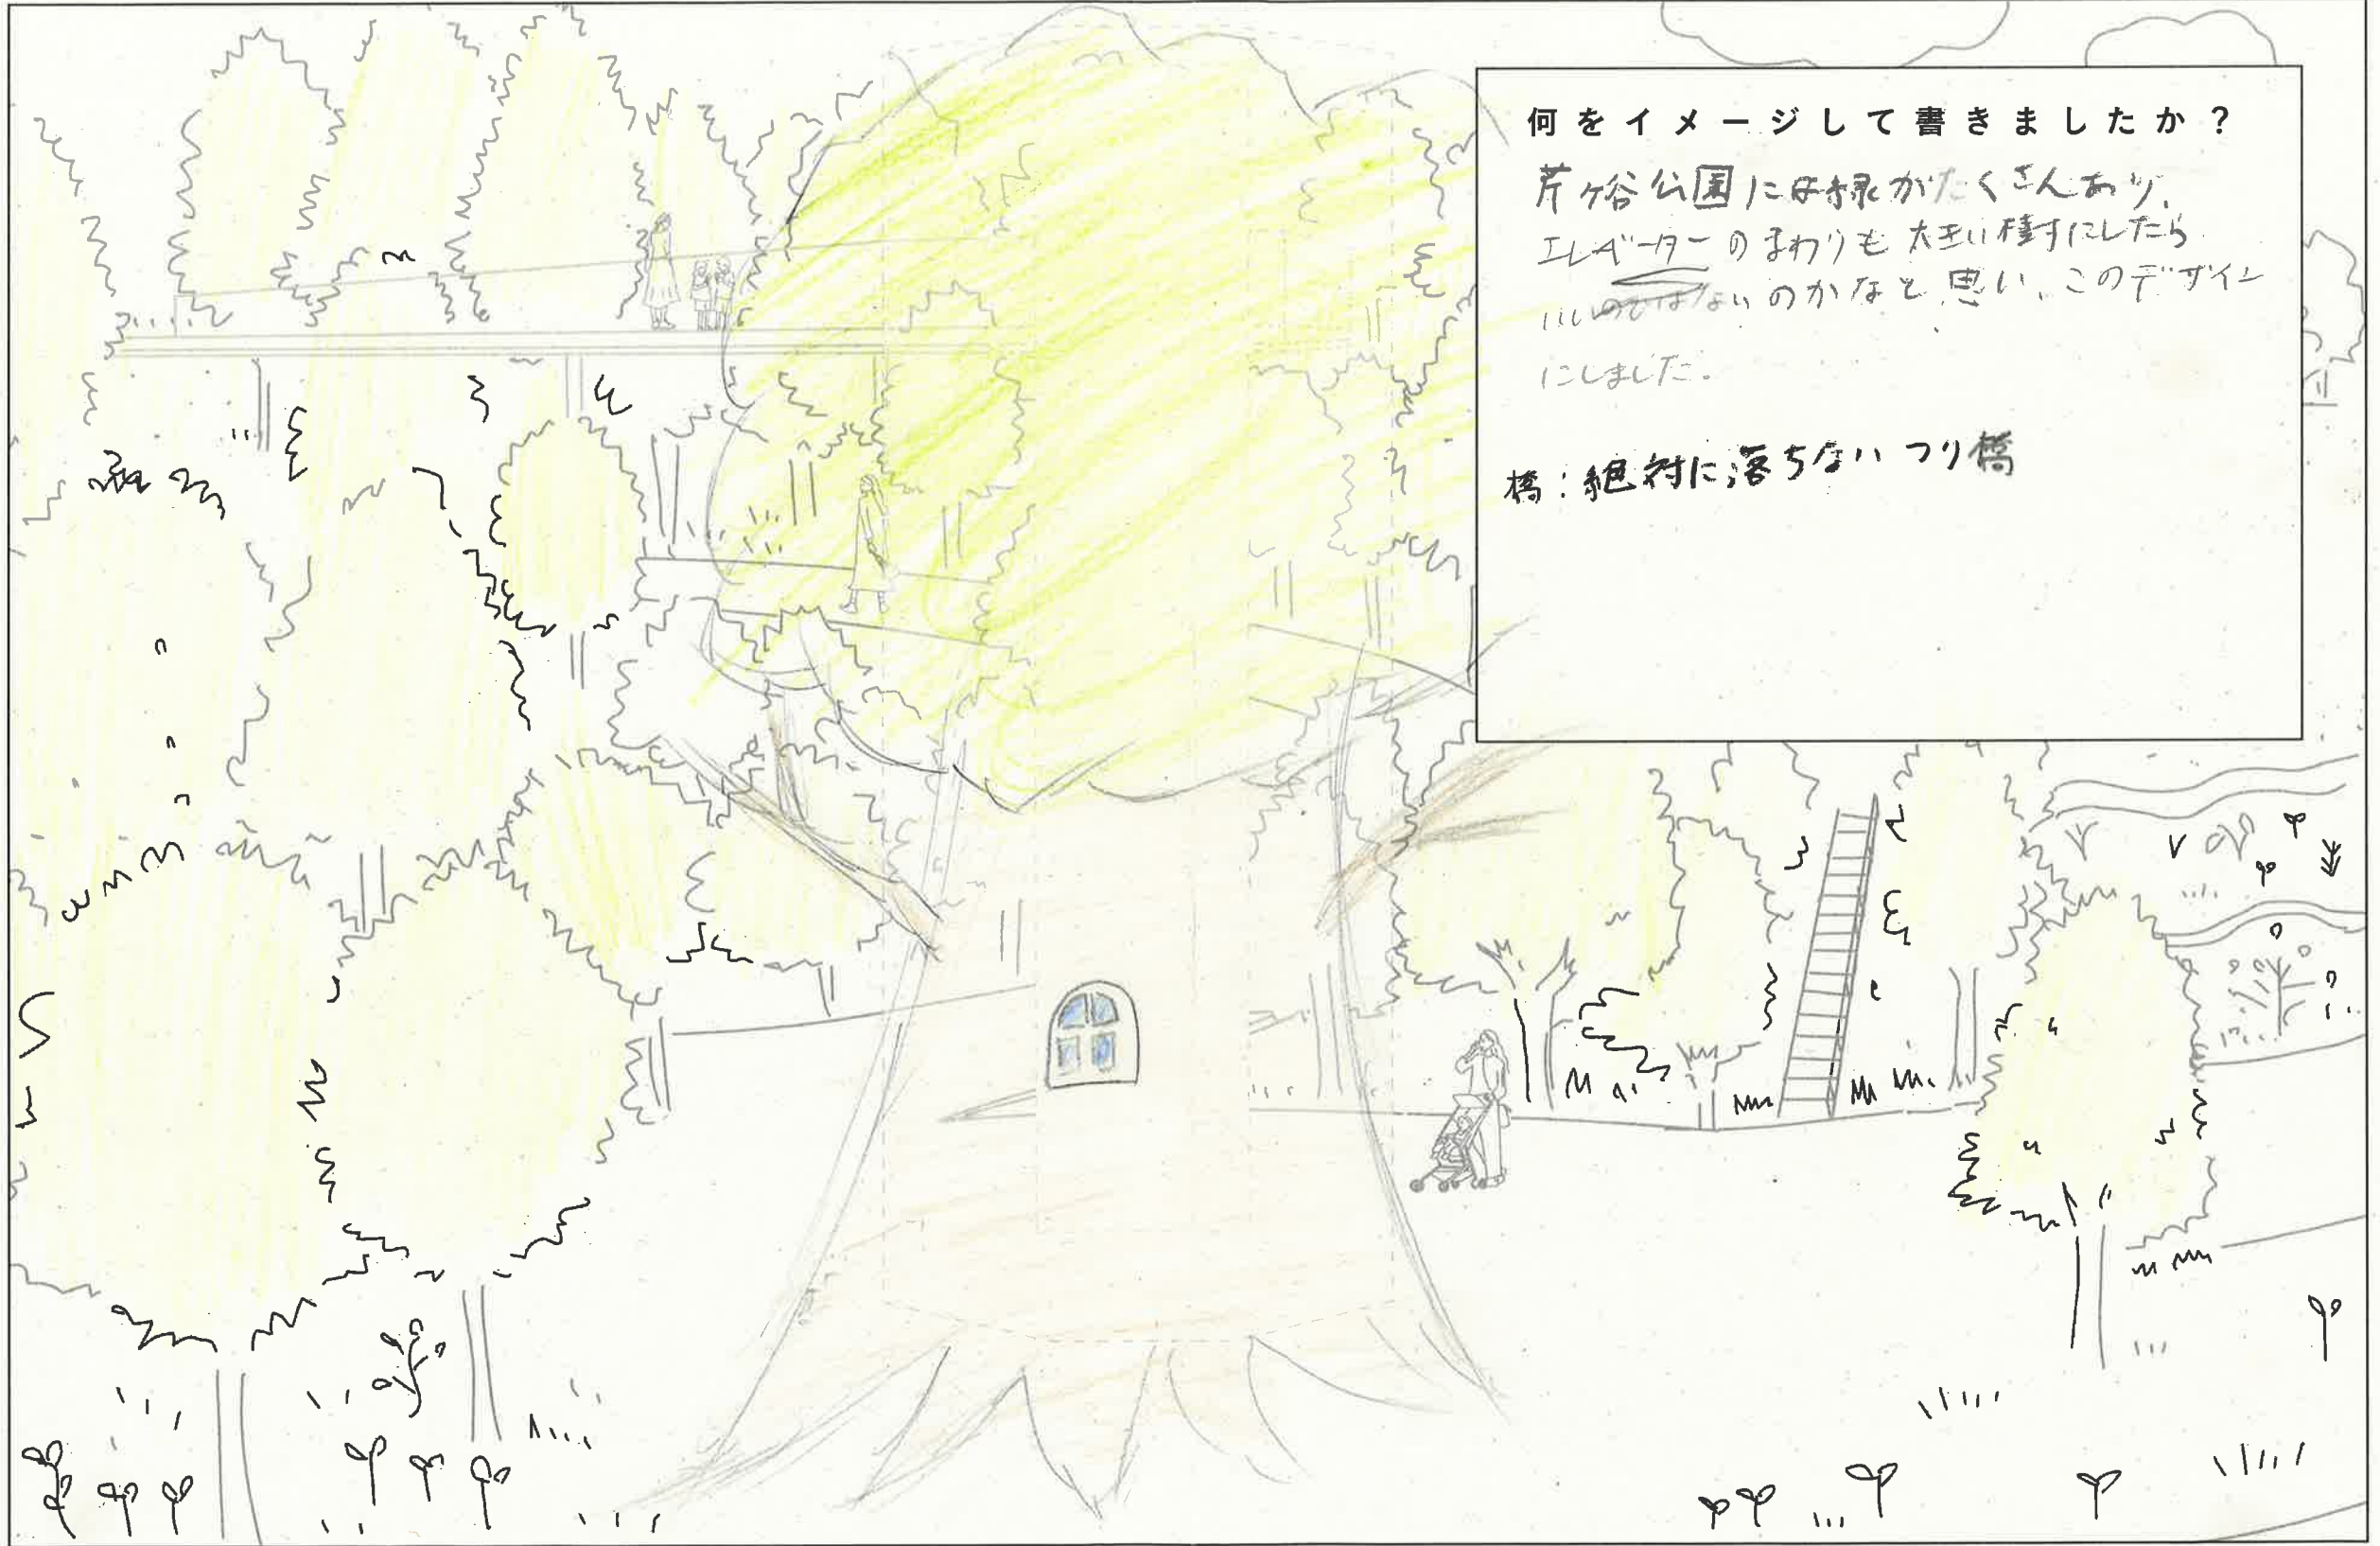 何をイメージして書きましたか？
芹ヶ谷公園には緑がたくさんあり、
エレベーターのまわりも大きい樹木にしたら
いいのではないのかなと思い、このデザイン
にしました。
橋：絶対に落ちないつり橋